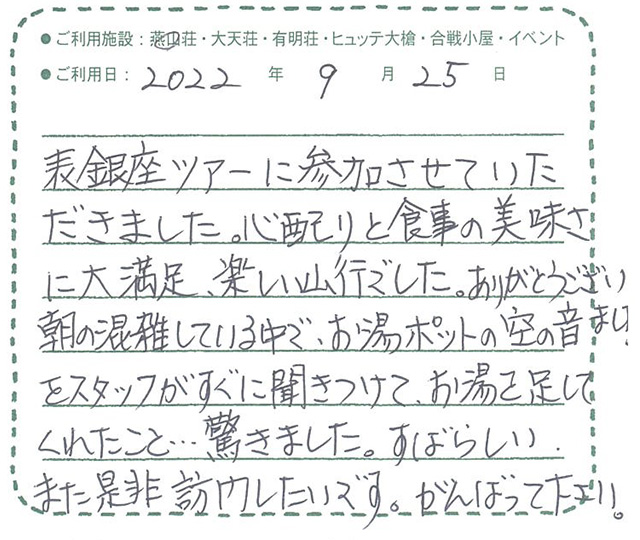 ● ご利用施設：燕山荘・大天荘・有明荘・ヒュッテ大槍・合戦小屋・イベント
● ご利用日：2022年 9月 25日
表銀座ツアーに参加させていた
だきました。心配りと食事の美味さ
に大満足、楽しい山行でした。ありがとうござい
ました
朝の混雑している中で、お湯ポットの空の音
をスタッフがすぐに聞きつけて、お湯を足して
くれたこと…驚きました。すばらしい.
また是非訪れたいです。がんばって下さい。